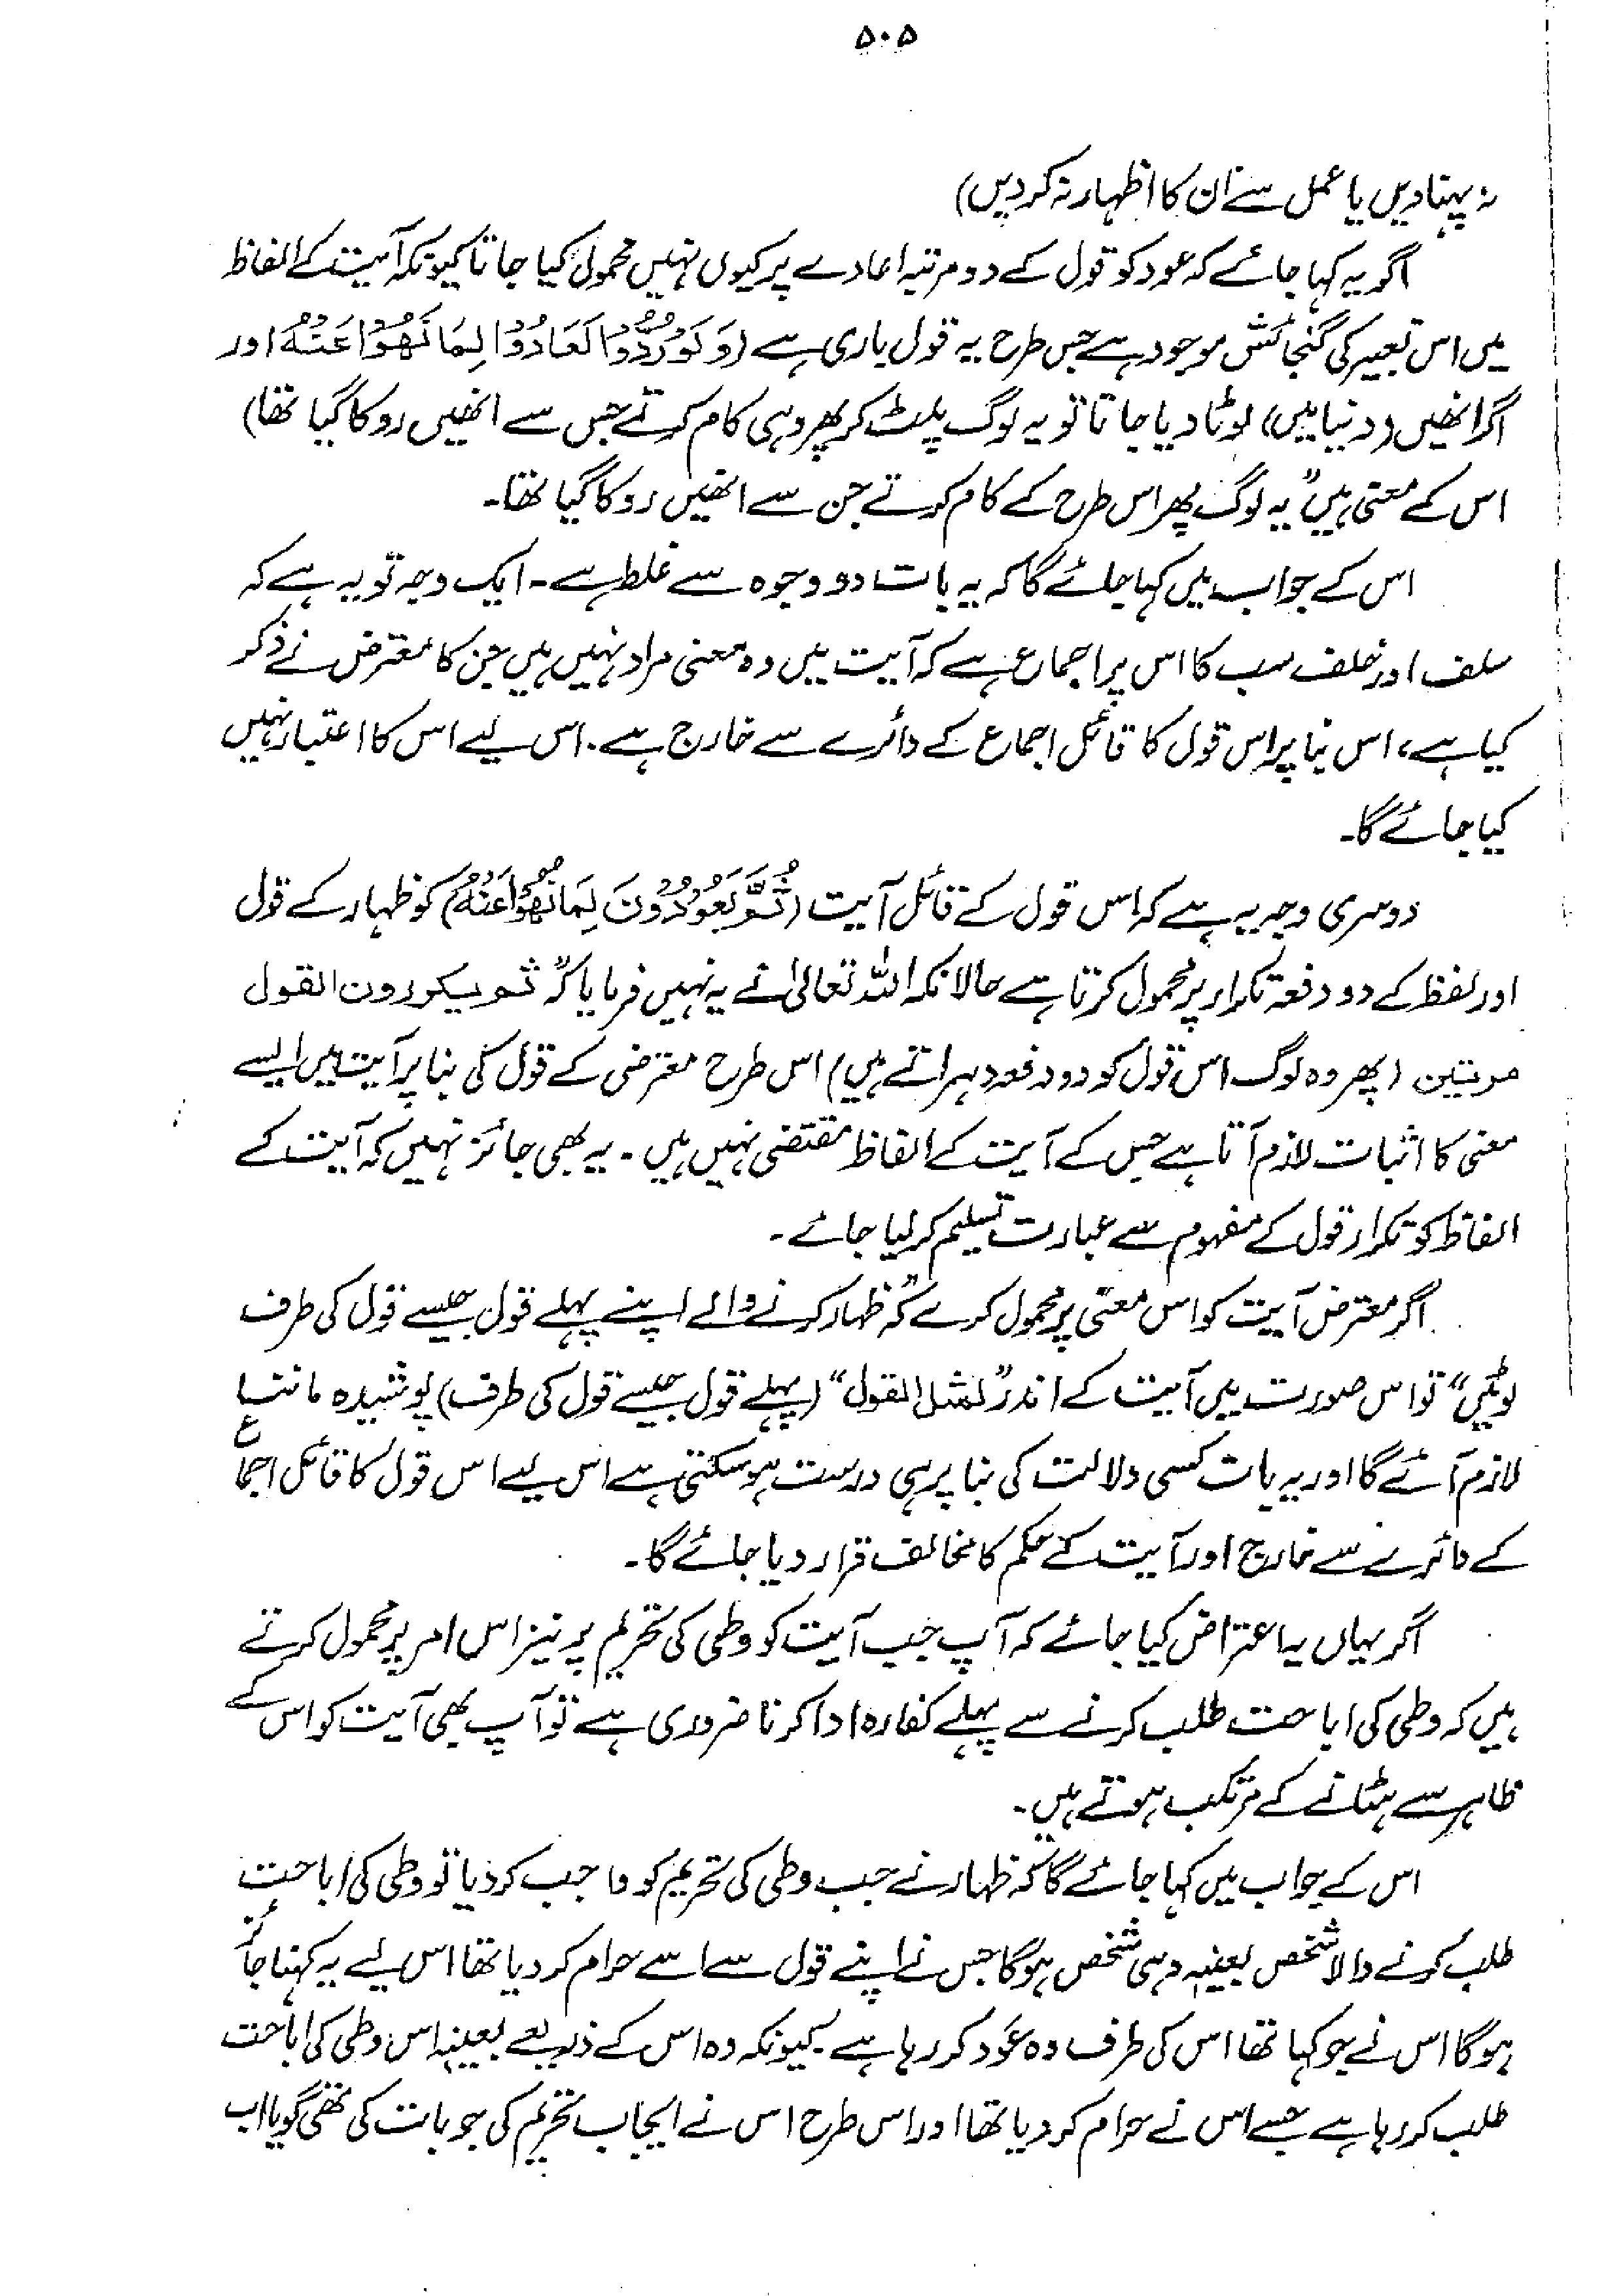 ۵۰۵
نہ پہنا دیں یا عمل سے ان کا اظہار نہ کر دیں)
اگر یہ کہا جائے کہ عود کو قول کے دو مرتبہ اعادے پر کیوں نہیں محمول کیا جاتا کیونکہ آیت کے الفاظ
میں اس تعبیر کی گنجائش موجود ہے جس طرح یہ قول باری ہے (وَلَوْ رُدُّوْا لَعَادُوْا لِمَا نُهُوْا عَنْهُ اور
اگر انھیں (دنیا میں) لوٹا دیا جاتا تو یہ لوگ پلٹ کر پھر وہی کام کرتے جس سے انھیں روکا گیا تھا)
اس کے معنی ہیں" یہ لوگ پھر اس طرح کے کام کرتے جن سے انھیں روکا گیا تھا۔
اس کے جواب میں کہا جائے گا کہ یہ بات دو وجوہ سے غلط ہے۔ ایک وجہ تو یہ ہے کہ
سلف اور خلف سب کا اس پر اجماع ہے کہ آیت میں وہ معنی مراد نہیں ہیں جن کا معترض نے ذکر
کیا ہے، اس بنا پر اس قول کا قائل اجماع کے دائرے سے خارج ہے۔ اس لیے اس کا اعتبار نہیں
کیا جائے گا۔
دوسری وجہ یہ ہے کہ اس قول کے قائل آیت (ثُمَّ يَعُوْدُوْنَ لِمَا نُهُوْا عَنْهُ) کو ظہار کے قول
اور لفظ کے دو دفعہ تکرار پر محمول کرتا ہے حالانکہ اللہ تعالیٰ نے یہ نہیں فرمایا کہ" ثم یکررون القول
مرتین (پھر وہ لوگ اس قول کو دو دفعہ دہراتے ہیں) اس طرح معترض کے قول کی بنا پر آیت میں ایسے
معنی کا اثبات لازم آتا ہے جس کے آیت کے الفاظ مقتضی نہیں ہیں۔ یہ بھی جائز نہیں کہ آیت کے
الفاظ کو تکرار قول کے مفہوم سے عبارت تسلیم کر لیا جائے۔
اگر معترض آیت کو اس معنی پر محمول کرے کہ" ظہار کرنے والے اپنے پہلے قول جیسے قول کی طرف
لوٹیں" تو اس صورت میں آیت کے اندر" لمثل القول" (پہلے قول جیسے قول کی طرف) پوشیدہ ماننا
لازم آئے گا اور یہ بات کسی دلالت کی بنا پر ہی درست ہو سکتی ہے اس لیے اس قول کا قائل اجماع
کے دائرے سے خارج اور آیت کے حکم کا مخالف قرار دیا جائے گا۔
اگر یہاں یہ اعتراض کیا جائے کہ آپ جب آیت کو وطی کی تحریم پر نیز اس امر پر محمول کرتے
ہیں کہ وطی کی اباحت طلب کرنے سے پہلے کفارہ ادا کرنا ضروری ہے تو آپ بھی آیت کو اس کے
ظاہر سے ہٹانے کے مرتکب ہوتے ہیں۔
اس کے جواب میں کہا جائے گا کہ ظہار نے جب وطی کی تحریم کو واجب کر دیا تو وطی کی اباحت
طلب کرنے والا شخص بعینہٖ وہی شخص ہوگا جس نے اپنے قول سے اسے حرام کر دیا تھا اس لیے یہ کہنا جائز
ہوگا اس نے جو کہا تھا اس کی طرف وہ عَود کر رہا ہے۔ کیونکہ وہ اس کے ذریعے بعینہٖ اس وطی کی اباحت
طلب کر رہا ہے جسے اس نے حرام کر دیا تھا اور اس طرح اس نے ایجاب تحریم کی جو بات کی تھی گویا اب